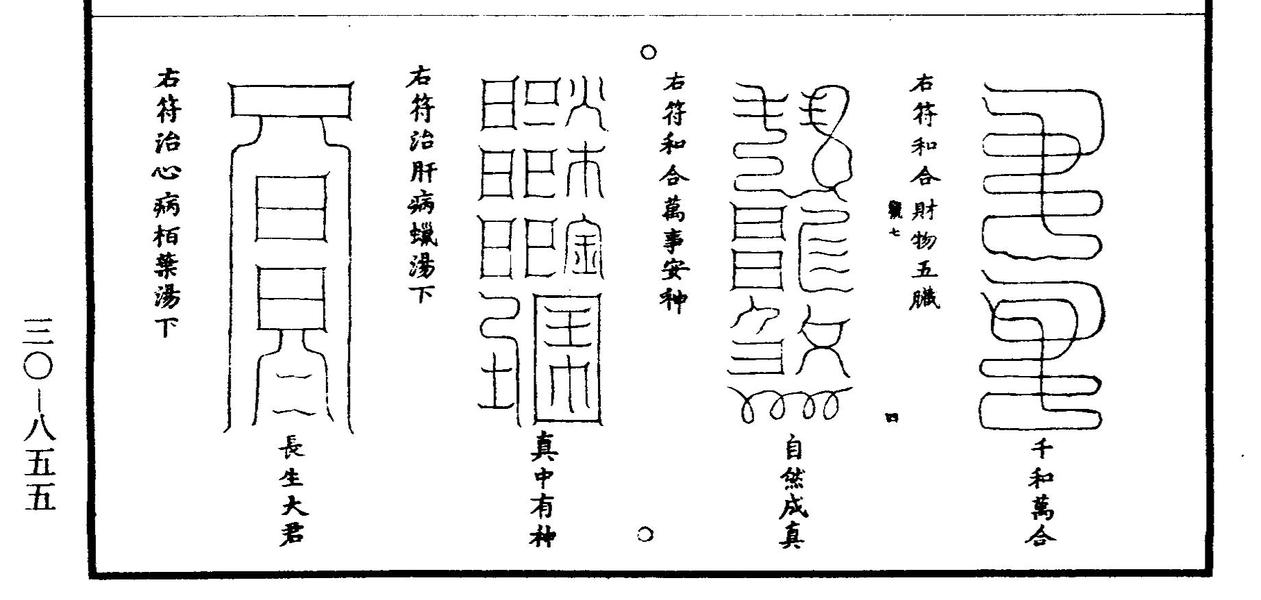 千和萬合
右符和合財物五臟
七
四
自然成真
右符和合萬事安种
真中有种
右符治肝病蠟湯下
長生大君
右符治心病栢葉湯下
三〇—八五五